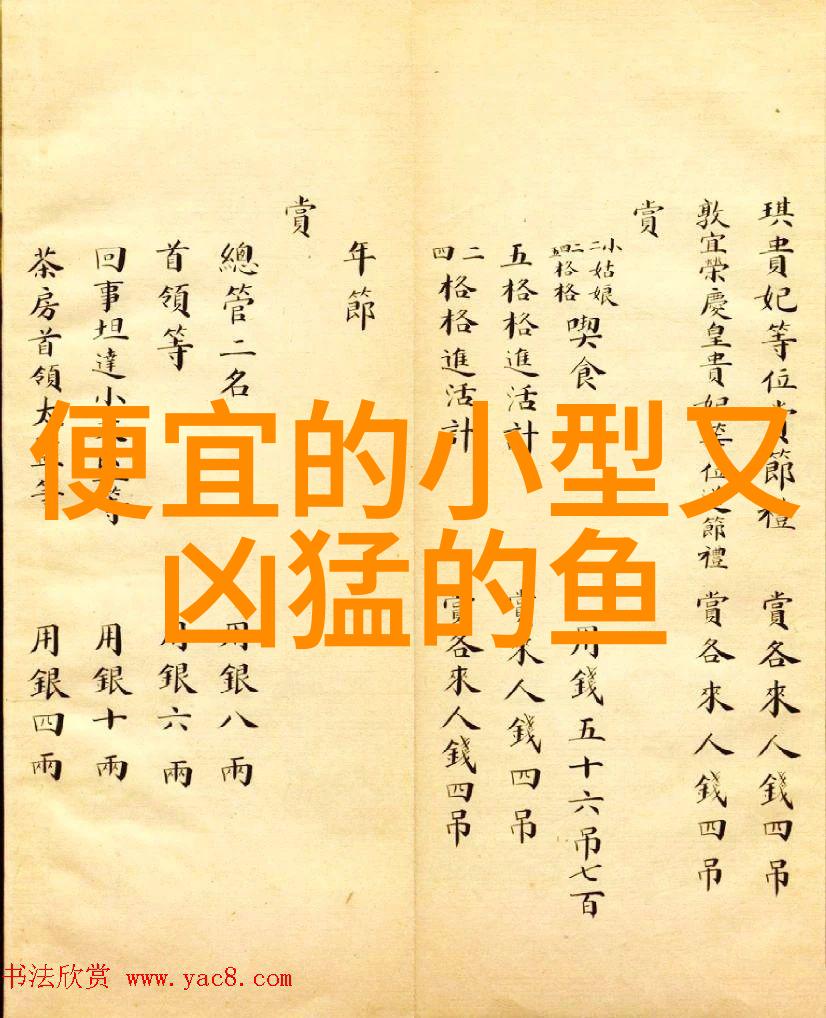 琪貴妃等位賞節禮 賞各來人錢四吊
敦宜榮慶皇貴妃等位送節禮 賞各來人錢四吊
賞
小姑娘
二二格格
四五格格
喫食 用錢五十六吊七百
五格格進活計 賞來人錢四吊
二四格格進活計 賞各來人錢四吊
年節
賞
總管二名 用銀八兩
首領等 用銀六兩
回事坦達小太監等 用銀十兩
茶房首領太監等 用銀四兩
便宜的小型又
凶猛的鱼
书法欣赏 www.yac8.com